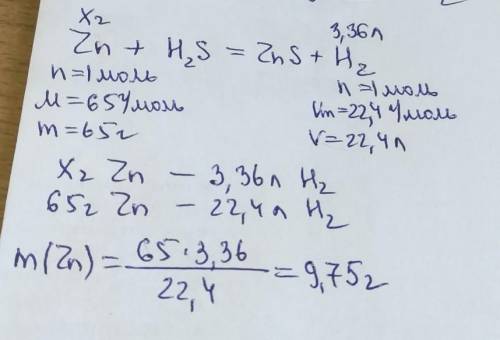 x г 3,36л
Zn + H₂S = ZnS + H₂
n = 1 моль n = 1 моль
M = 65 г/моль Vm = 22,4 л/моль
m = 65 г V = 22,4 л
x г Zn — 3,36 л H₂
65 г Zn — 22,4 л H₂
m(Zn) = 65 · 3,36 / 22,4 = 9,75 г